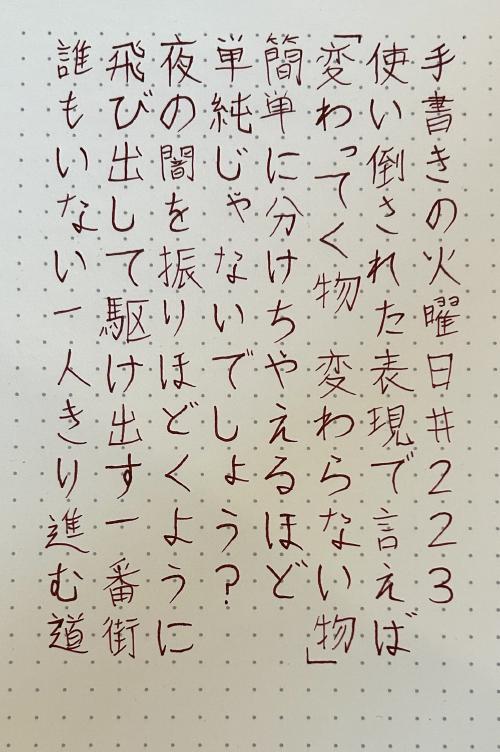 手書きの火曜日#223
使い倒された表現で言えば
「変わってく物　変わらない物」
簡単に分けちゃえるほど
単純じゃないでしょう?
夜の闇を振りほどくように
飛び出して駆け出す一番街
誰もいない一人きり進む道